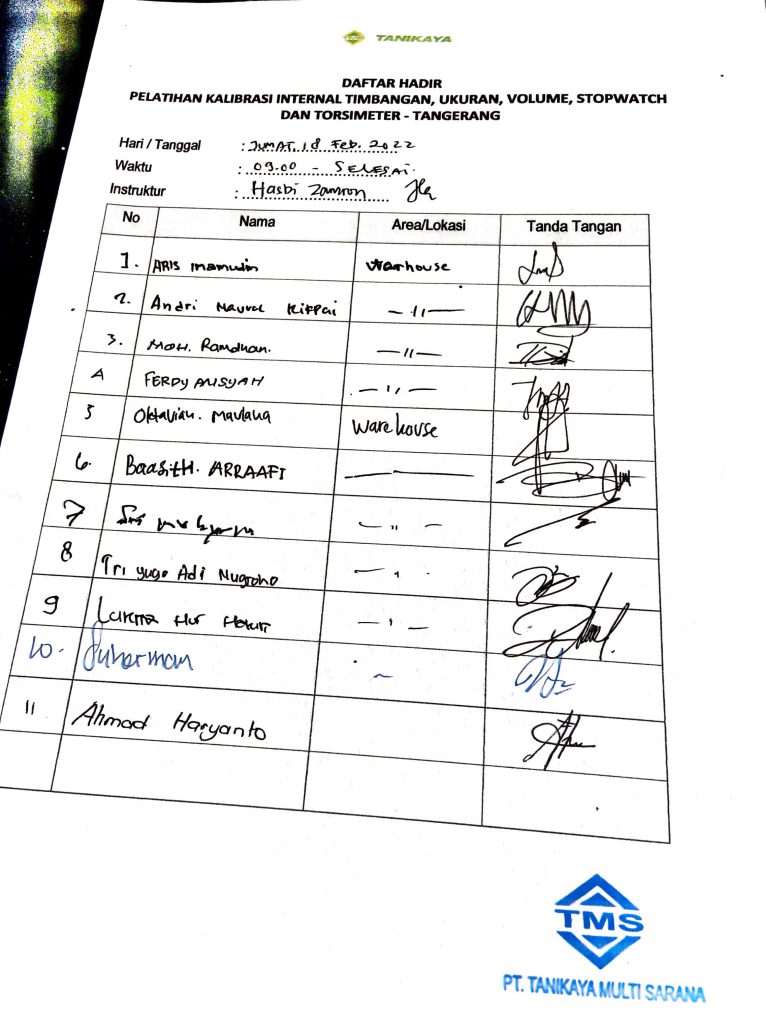 TANIKAYA
DAFTAR HADIR
PELATIHAN KALIBRASI INTERNAL TIMBANGAN, UKURAN, VOLUME, STOPWATCH
DAN TORSIMETER - TANGERANG
Hari / Tanggal : JUMAT, 18 Feb. 2022
Waktu : 09.00 - SELESAI.
Instruktur : Hasbi Zamron
No Nama Area/Lokasi Tanda Tangan
1. ARIS Warhouse
2. Andri — 11 —
3. MOH. Ramdhan. — 11 —
4 FERDYANSYAH — 11 —
5 Oktavian. Maulana Warehouse
6. BaasitH. ARRAAFI
7 Sri — 11 —
8 Tri yugo Adi Nugroho
9 Hakim
10. Suherman
11 Ahmad Haryanto
TMS
PT. TANIKAYA MULTI SARANA